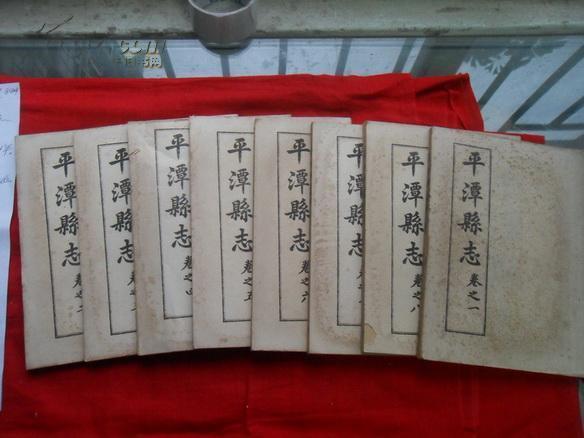 平潭縣志 卷之二
平潭縣志 卷之
平潭縣志 卷之四
平潭縣志 卷之五
平潭縣志 卷之六
平潭縣志 卷之
平潭縣志 卷之八
平潭縣志 卷之一